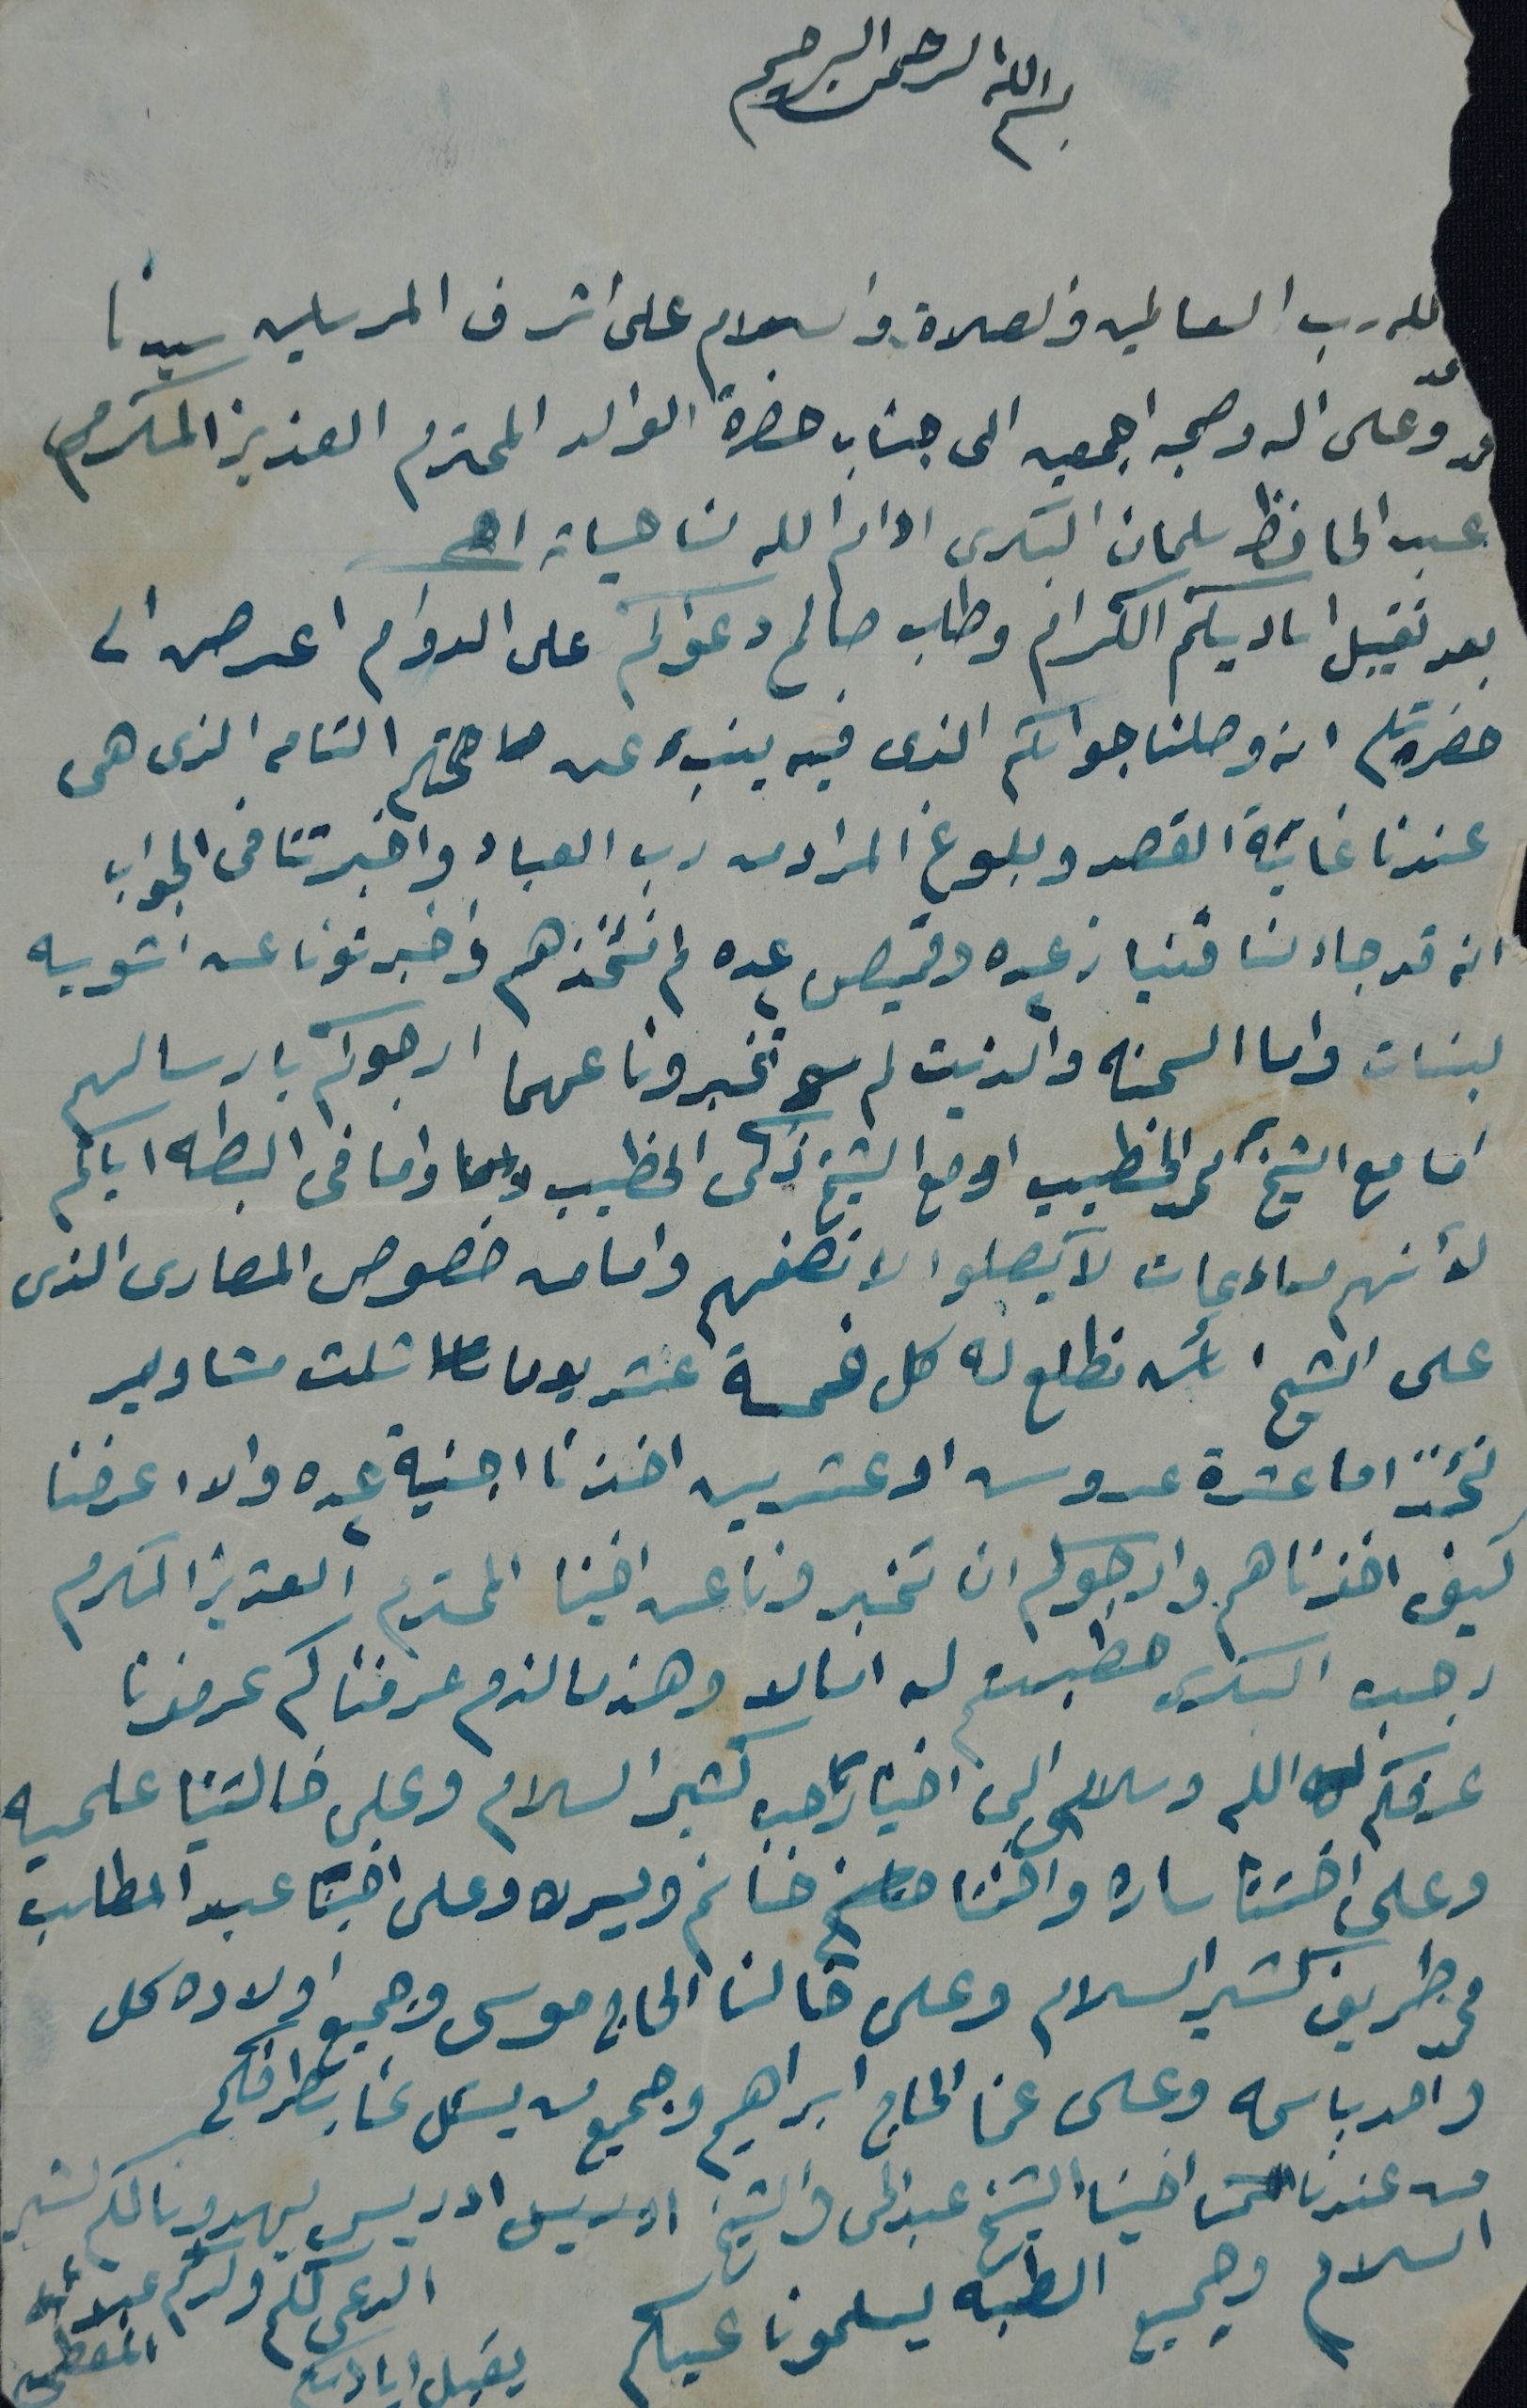 بسم الله الرحمن الرحيم
لله رب العالمين والصلاة والسلام على اشرف المرسلين سيدنا
محمد وعلى اله وصحبه اجمعين الى جناب حضرة الوالد المحترم العزيز المكرم
عبد الحافظ سلمان البكرى ادام الله لنا حياته
بعد تقبيل اياديكم الكرام وطلب صالح دعواكم على الدوام اعرض الى
حضرتكم انه وصلنا جوابكم الذى فيه ينبىء عن صحتكم التامه الذى هى
عندنا غاية القصد وبلوغ المراد من رب العباد واخبرتنا فى الجواب
انه قد جاء لنا قنباز عدد وقميص عدد لم نتخذهم واخبرتونا عن اشويه
لبنات واما السمنه والزيت لم تخبرونا عنهما ارجوكم بارسالهم
اما مع الشيخ محمد الخطيب او مع الشيخ زكى الخطيب واما فى البطه اياكم
لأنهم لا يصلوا الا نصفهم واما من خصوص المصارى الذى
على الشيخ نطلع له كل خمسة عشر يوما ثلث مشاوير
نتخذ اما عشرة عروس او عشرين اخذنا اجنية عدد والا اعرفنا
كيف اخذناهم وارجوكم ان تخبرونا عن اخينا المحترم العزيز المكرم
رجب البكرى خطبتم له ام لا وهذا ما لزم عرفناكم عرفونا
عرفكم الله وسلامى الى اخينا رجب كثير السلام وعلى خالتينا علميه
وعلى اختنا ساره واختنا خنانم ويسره وعلى اخينا عبد المطلب
محمد ظريف كثير السلام وعلى خالنا الحاج موسى وجميع اولاده كل
واحد باسمه وعلى عمنا الحاج ابراهيم وجميع من يسئل عنا بطرفكم
من عندنا اخينا الشيخ عبد الحى والشيخ ادريس ادريس يهدونكم كثير
السلام وجميع الطلبه يسلمونا عليكم
الداعى لكم ولدكم
يقبل اياديكم